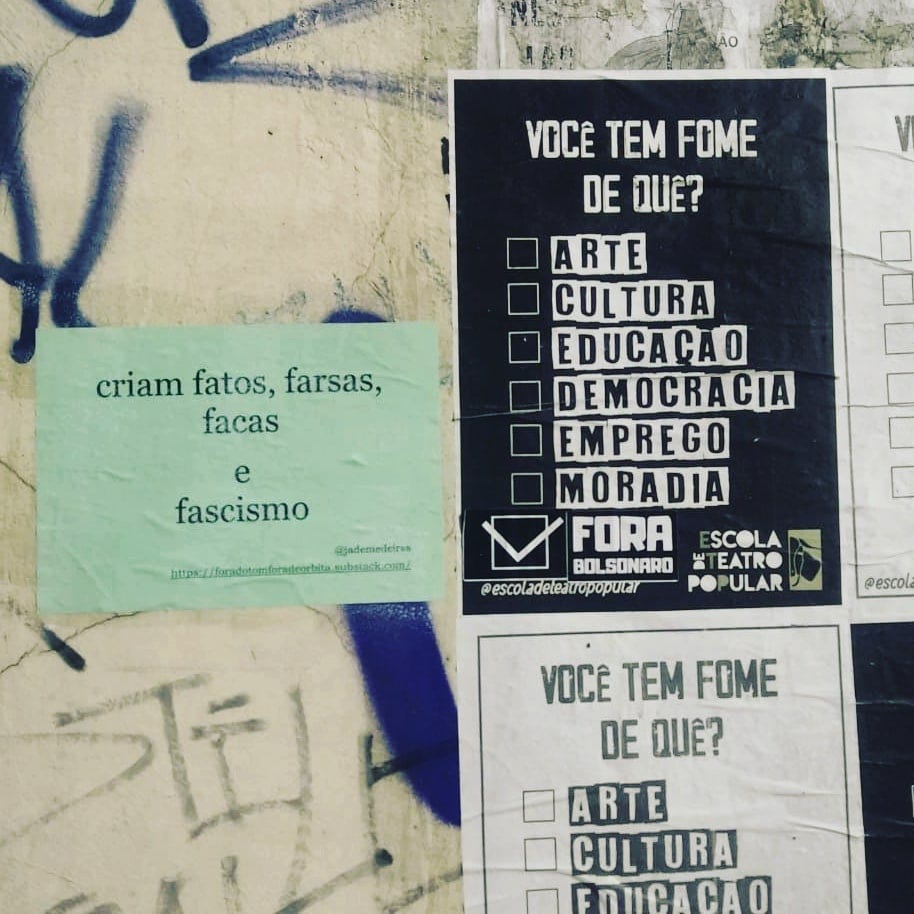 criam fatos, farsas,
facas
e
fascismo
@jademedeirss
https://foradotomforadeorbita.substack.com/
VOCÊ TEM FOME
DE QUÊ?
ARTE
CULTURA
EDUCAÇÃO
DEMOCRACIA
EMPREGO
MORADIA
FORA
BOLSONARO
ESCOLA
DE TEATRO
POPULAR
@escoladeteatropopular
VOCÊ TEM FOME
DE QUÊ?
ARTE
CULTURA
EDUCAÇÃO
V
@escola